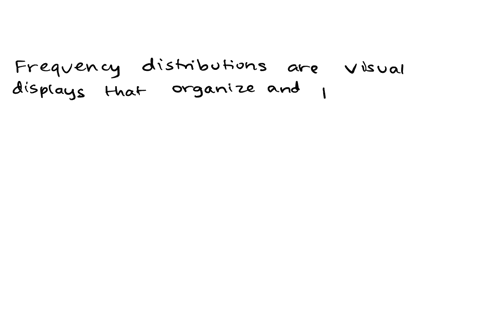 Frequency distributions are visual
displays that organize and